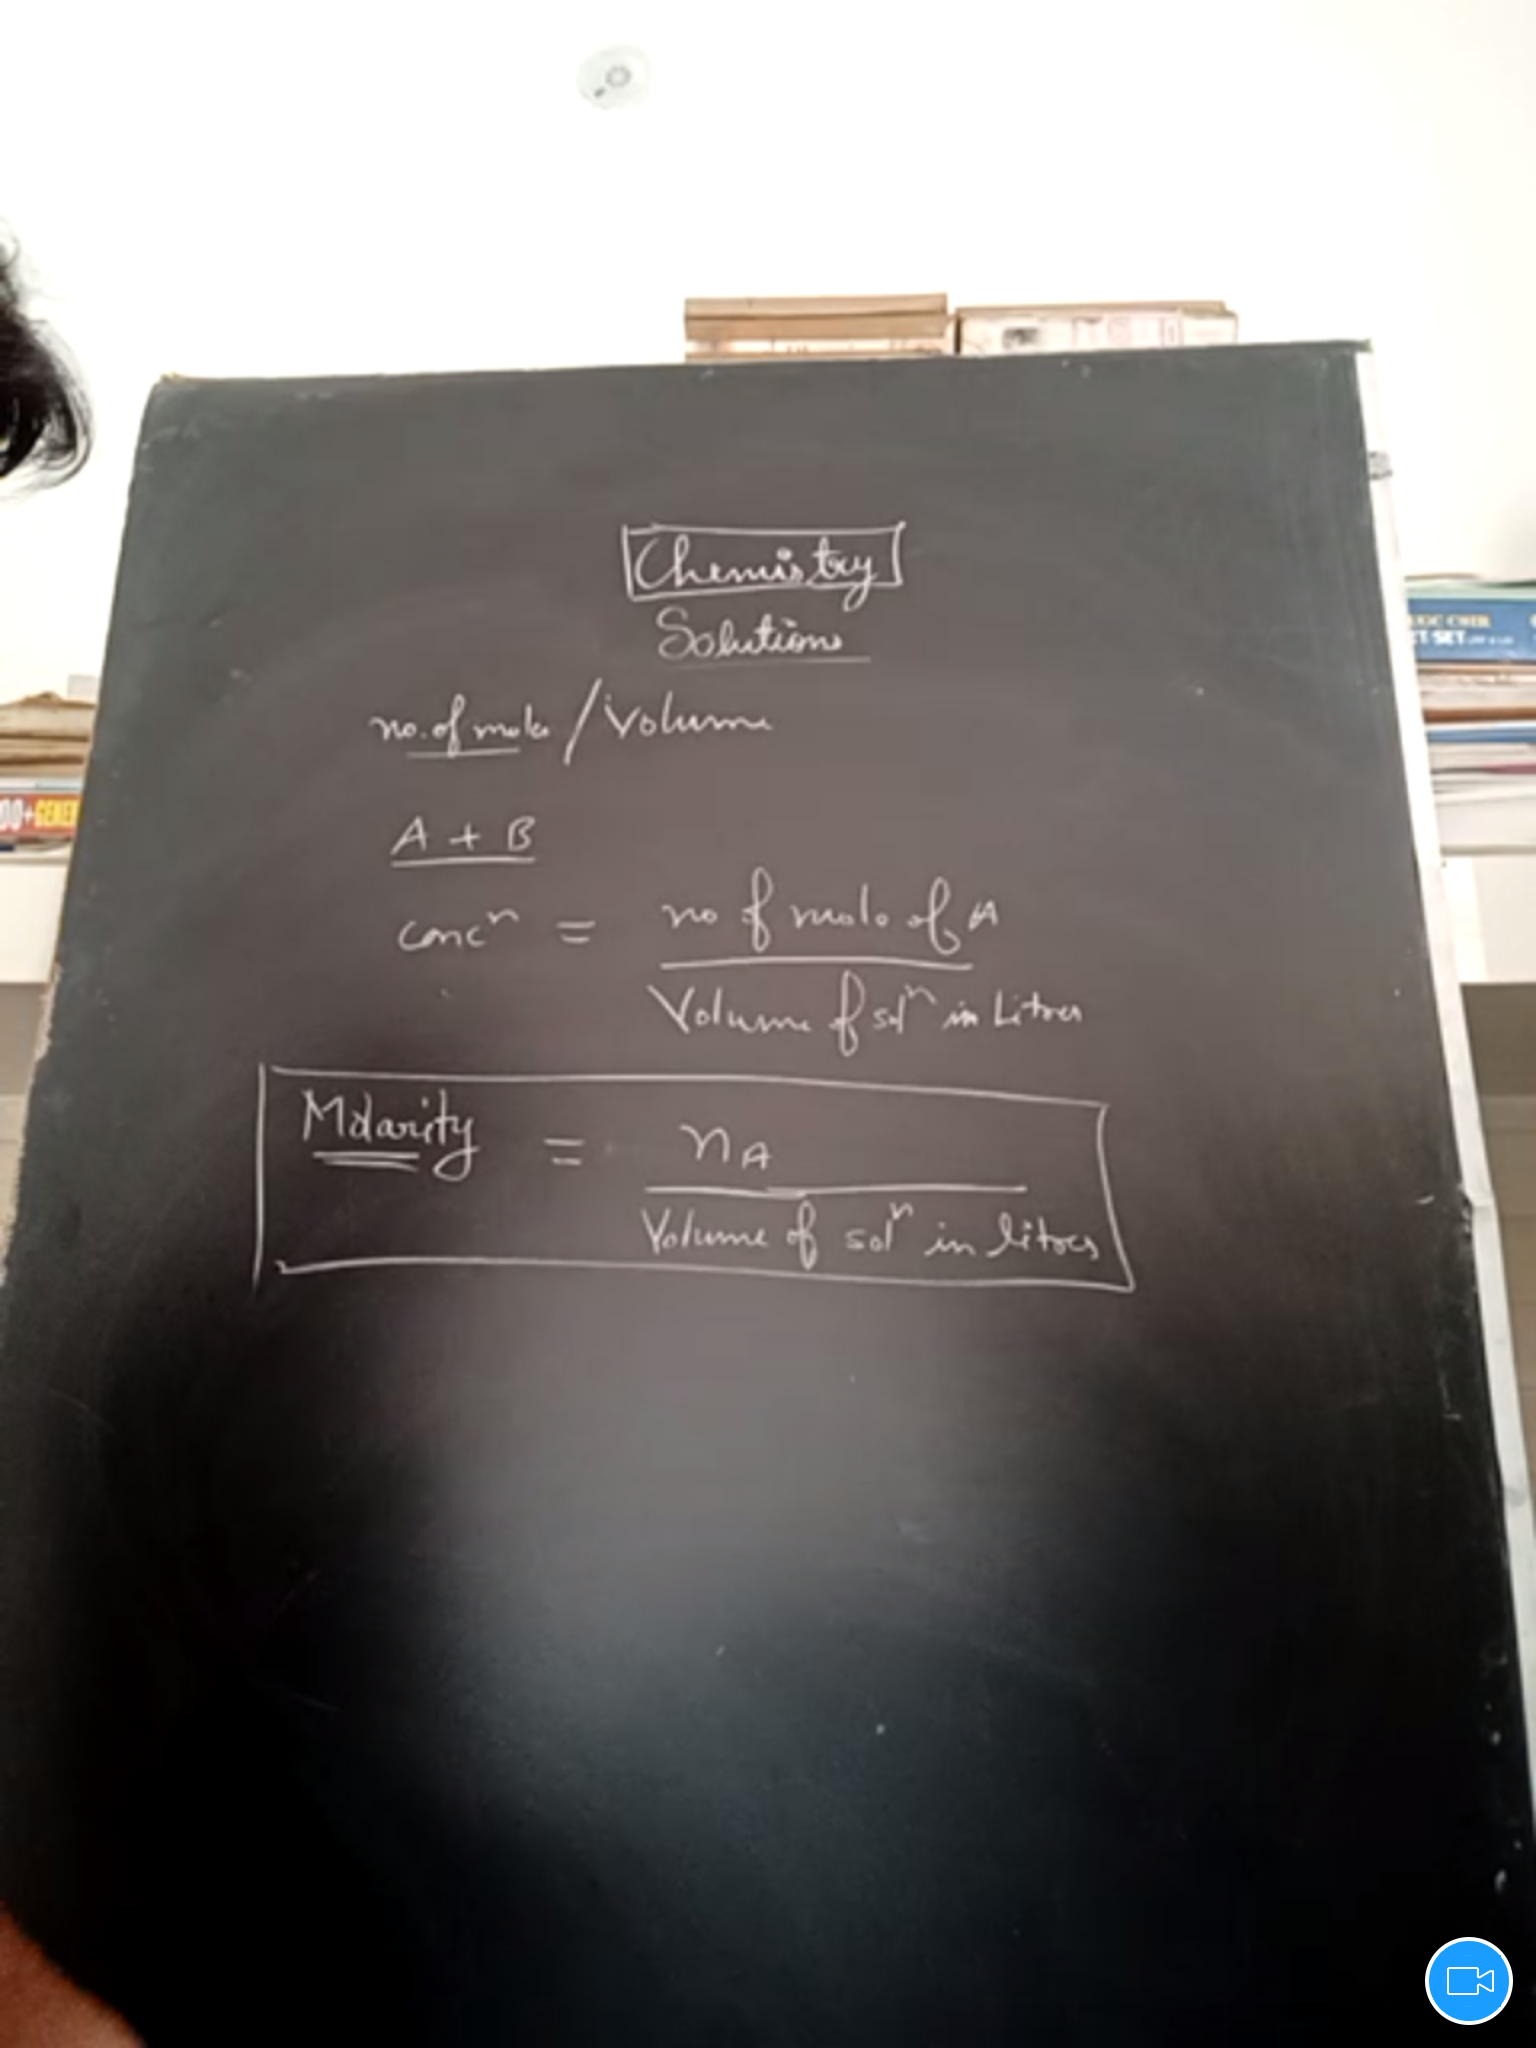 Chemistry
Solutions
no. of moles / Volume
A + B
concⁿ = no of mole of A
Volume of solⁿ in Litres
Molarity = nA
Volume of solⁿ in litres
00+GENER
UGC CSIR
SET